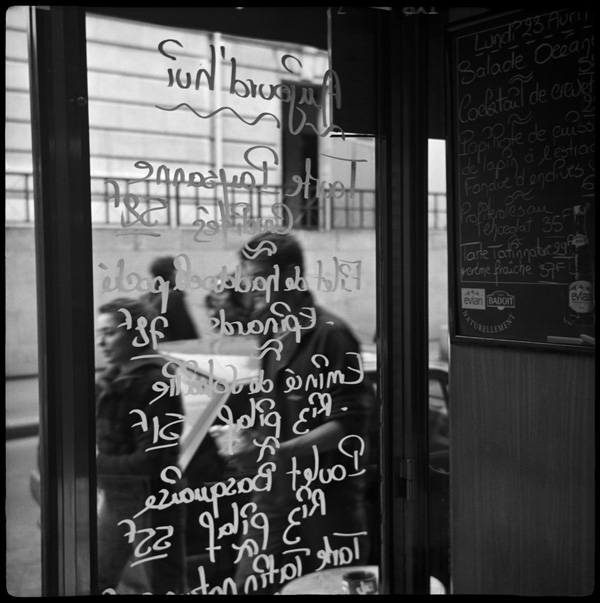 Aujourd'hui
Tarte Paysanne
Crudités 58F
Filet de haddock poché
- Epinards 72F
Emincé de Volaille
- Riz pilaf 51F
Poulet Basquaise
Riz pilaf 55F
Tarte Tatin nature
Lundi 23 Avril
Salade Océan
Cocktail de crevet
Papillote de cuiss
de lapin à l'estrag
Fondue d'endives
Profiteroles au
chocolat 35F
Tarte Tatin nature 29F
crème fraîche 37F
evian
BADOIT
evian
NATURELLEMENT